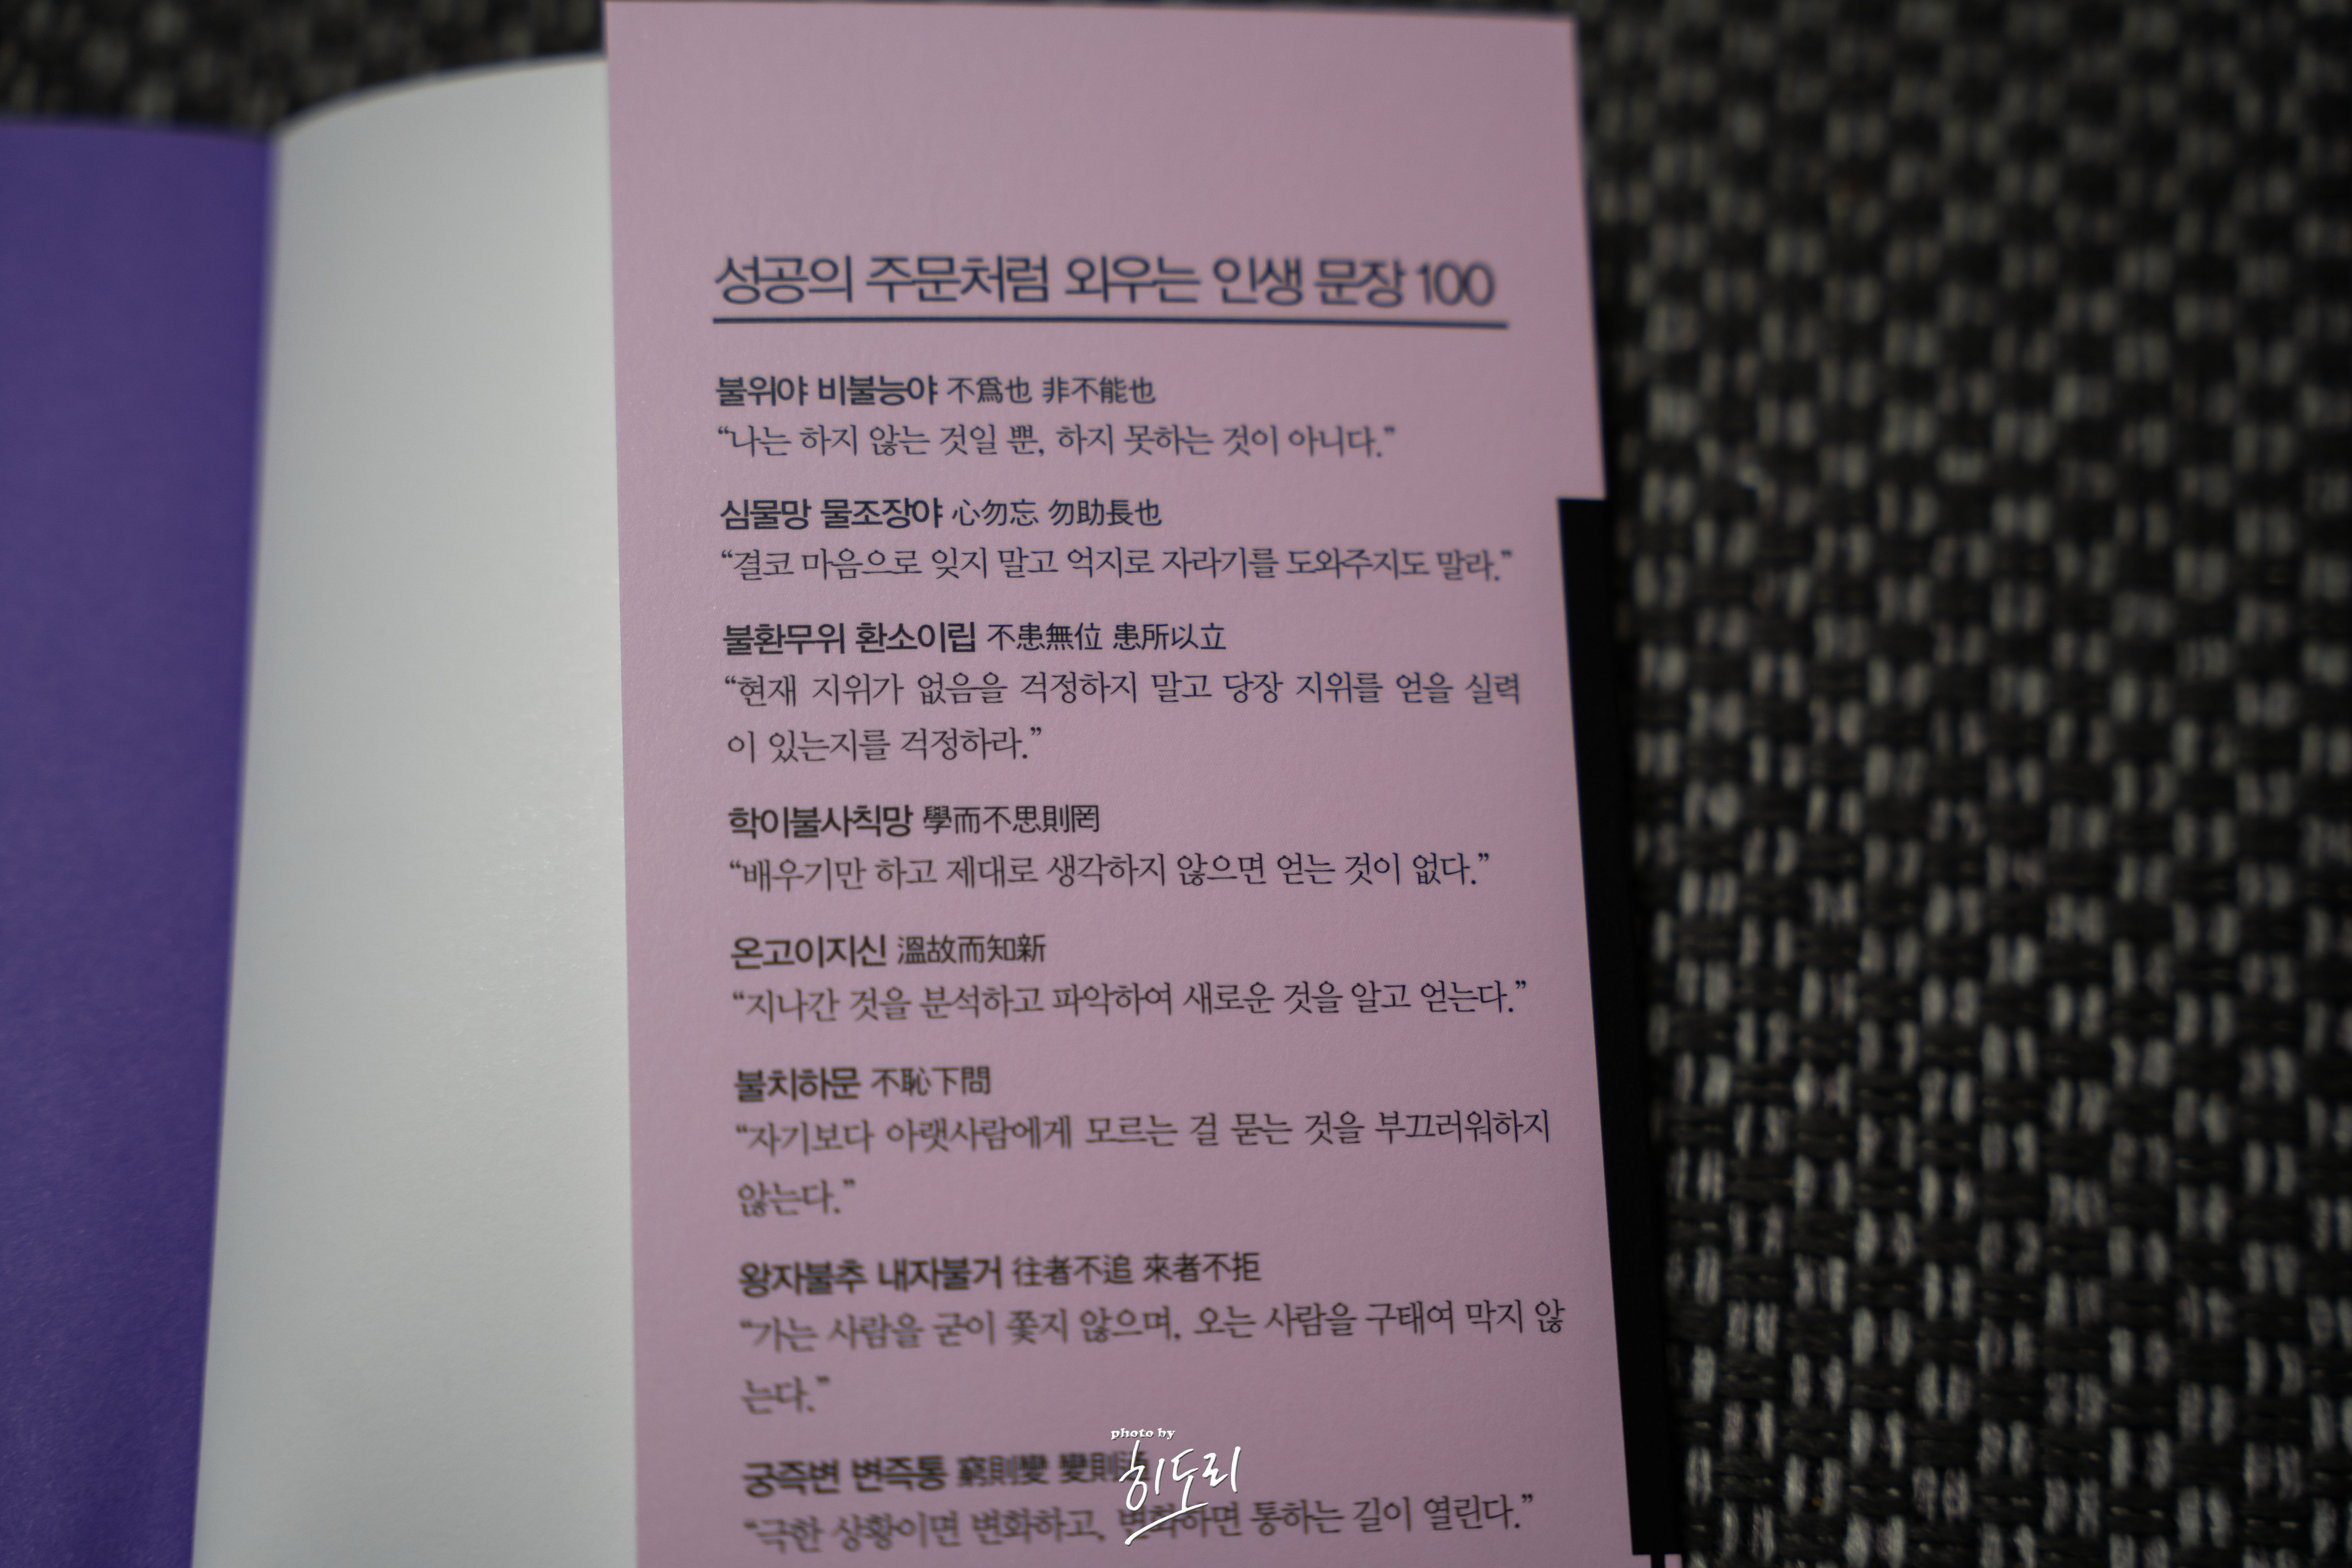 성공의 주문처럼 외우는 인생 문장 100
불위야 비불능야 不爲也 非不能也
“나는 하지 않는 것일 뿐, 하지 못하는 것이 아니다.”
심물망 물조장야 心勿忘 勿助長也
“결코 마음으로 잊지 말고 억지로 자라기를 도와주지도 말라.”
불환무위 환소이립 不患無位 患所以立
“현재 지위가 없음을 걱정하지 말고 당장 지위를 얻을 실력
이 있는지를 걱정하라.”
학이불사칙망 學而不思則罔
“배우기만 하고 제대로 생각하지 않으면 얻는 것이 없다.”
온고이지신 溫故而知新
“지나간 것을 분석하고 파악하여 새로운 것을 알고 얻는다.”
불치하문 不恥下問
“자기보다 아랫사람에게 모르는 걸 묻는 것을 부끄러워하지
않는다.”
왕자불추 내자불거 往者不追 來者不拒
“가는 사람을 굳이 쫓지 않으며, 오는 사람을 구태여 막지 않
는다.”
궁즉변 변즉통 窮則變 變則
“극한 상황이면 변화하고, 변화하면 통하는 길이 열린다.”
photo by
히도리